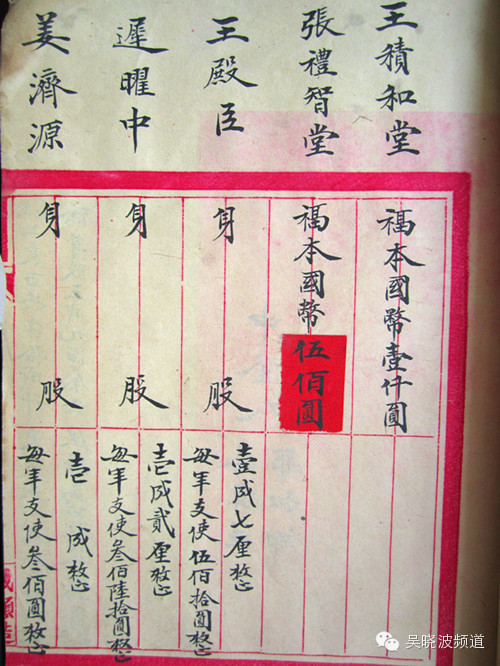 王積和堂
福本國幣壹仟圓
張禮智堂
福本國幣伍佰圓
王殿臣
身股
壹成七厘整
每年支使伍佰拾圓整
遲曜中
身股
壹成貳厘整
每年支使叁佰陸拾圓整
姜濟源
身股
壹成整
每年支使叁佰圓整
吴晓波频道